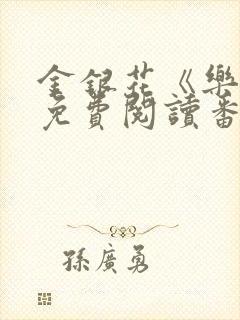 金銀花《樂
免費閱讀番
孫廣勇